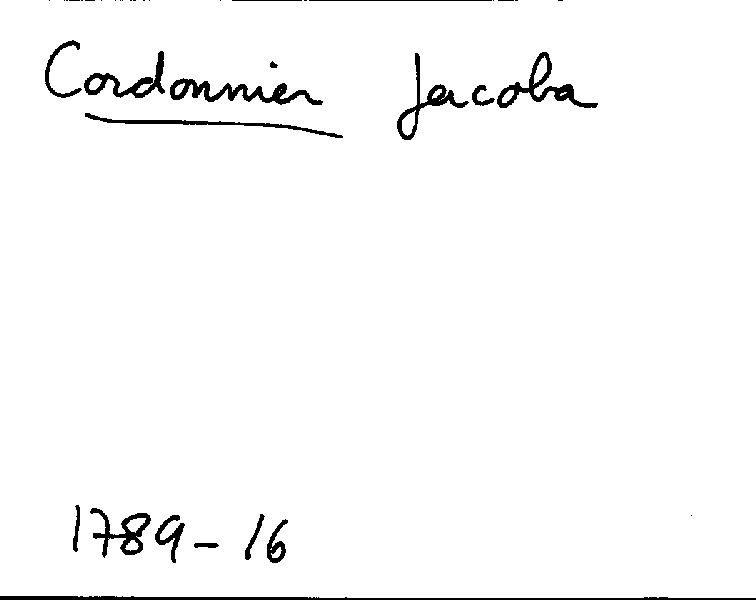 Cordonnier Jacoba
1789-16